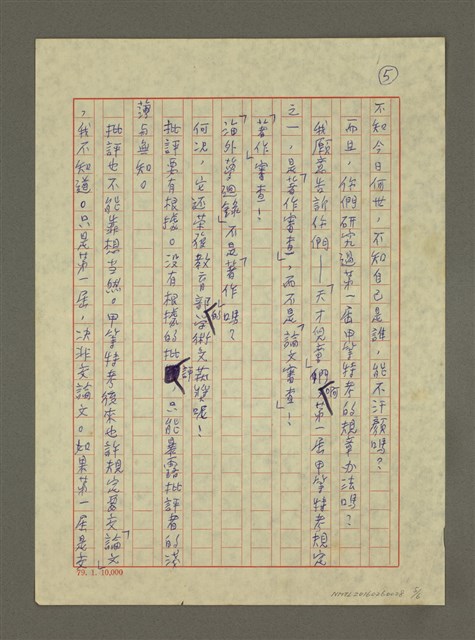 ⑤
不知今日何世，不知自己是誰，能不汗顏嗎？
而且，你們研究過第一屆甲等特考的規章办法嗎？
我願意告訴你們——「天才兒童」們啊，第一屆甲等特考規定
之一，是「著作審查」，而不是「論文審查」！
「著作審查！」
「海外縈迴錄」不是「著作」嗎？
何況，它还榮獲教育部的学術文藝獎呢！
批評要有根據。沒有根據的批評，只能暴露批評者的淺
薄与無知。
批評也不能靠想当然。甲等特考後來也許規定要交「論文」
，我不知道。只是第一屆，決非交論文。如果第一屆是交
79. 1. 10,000